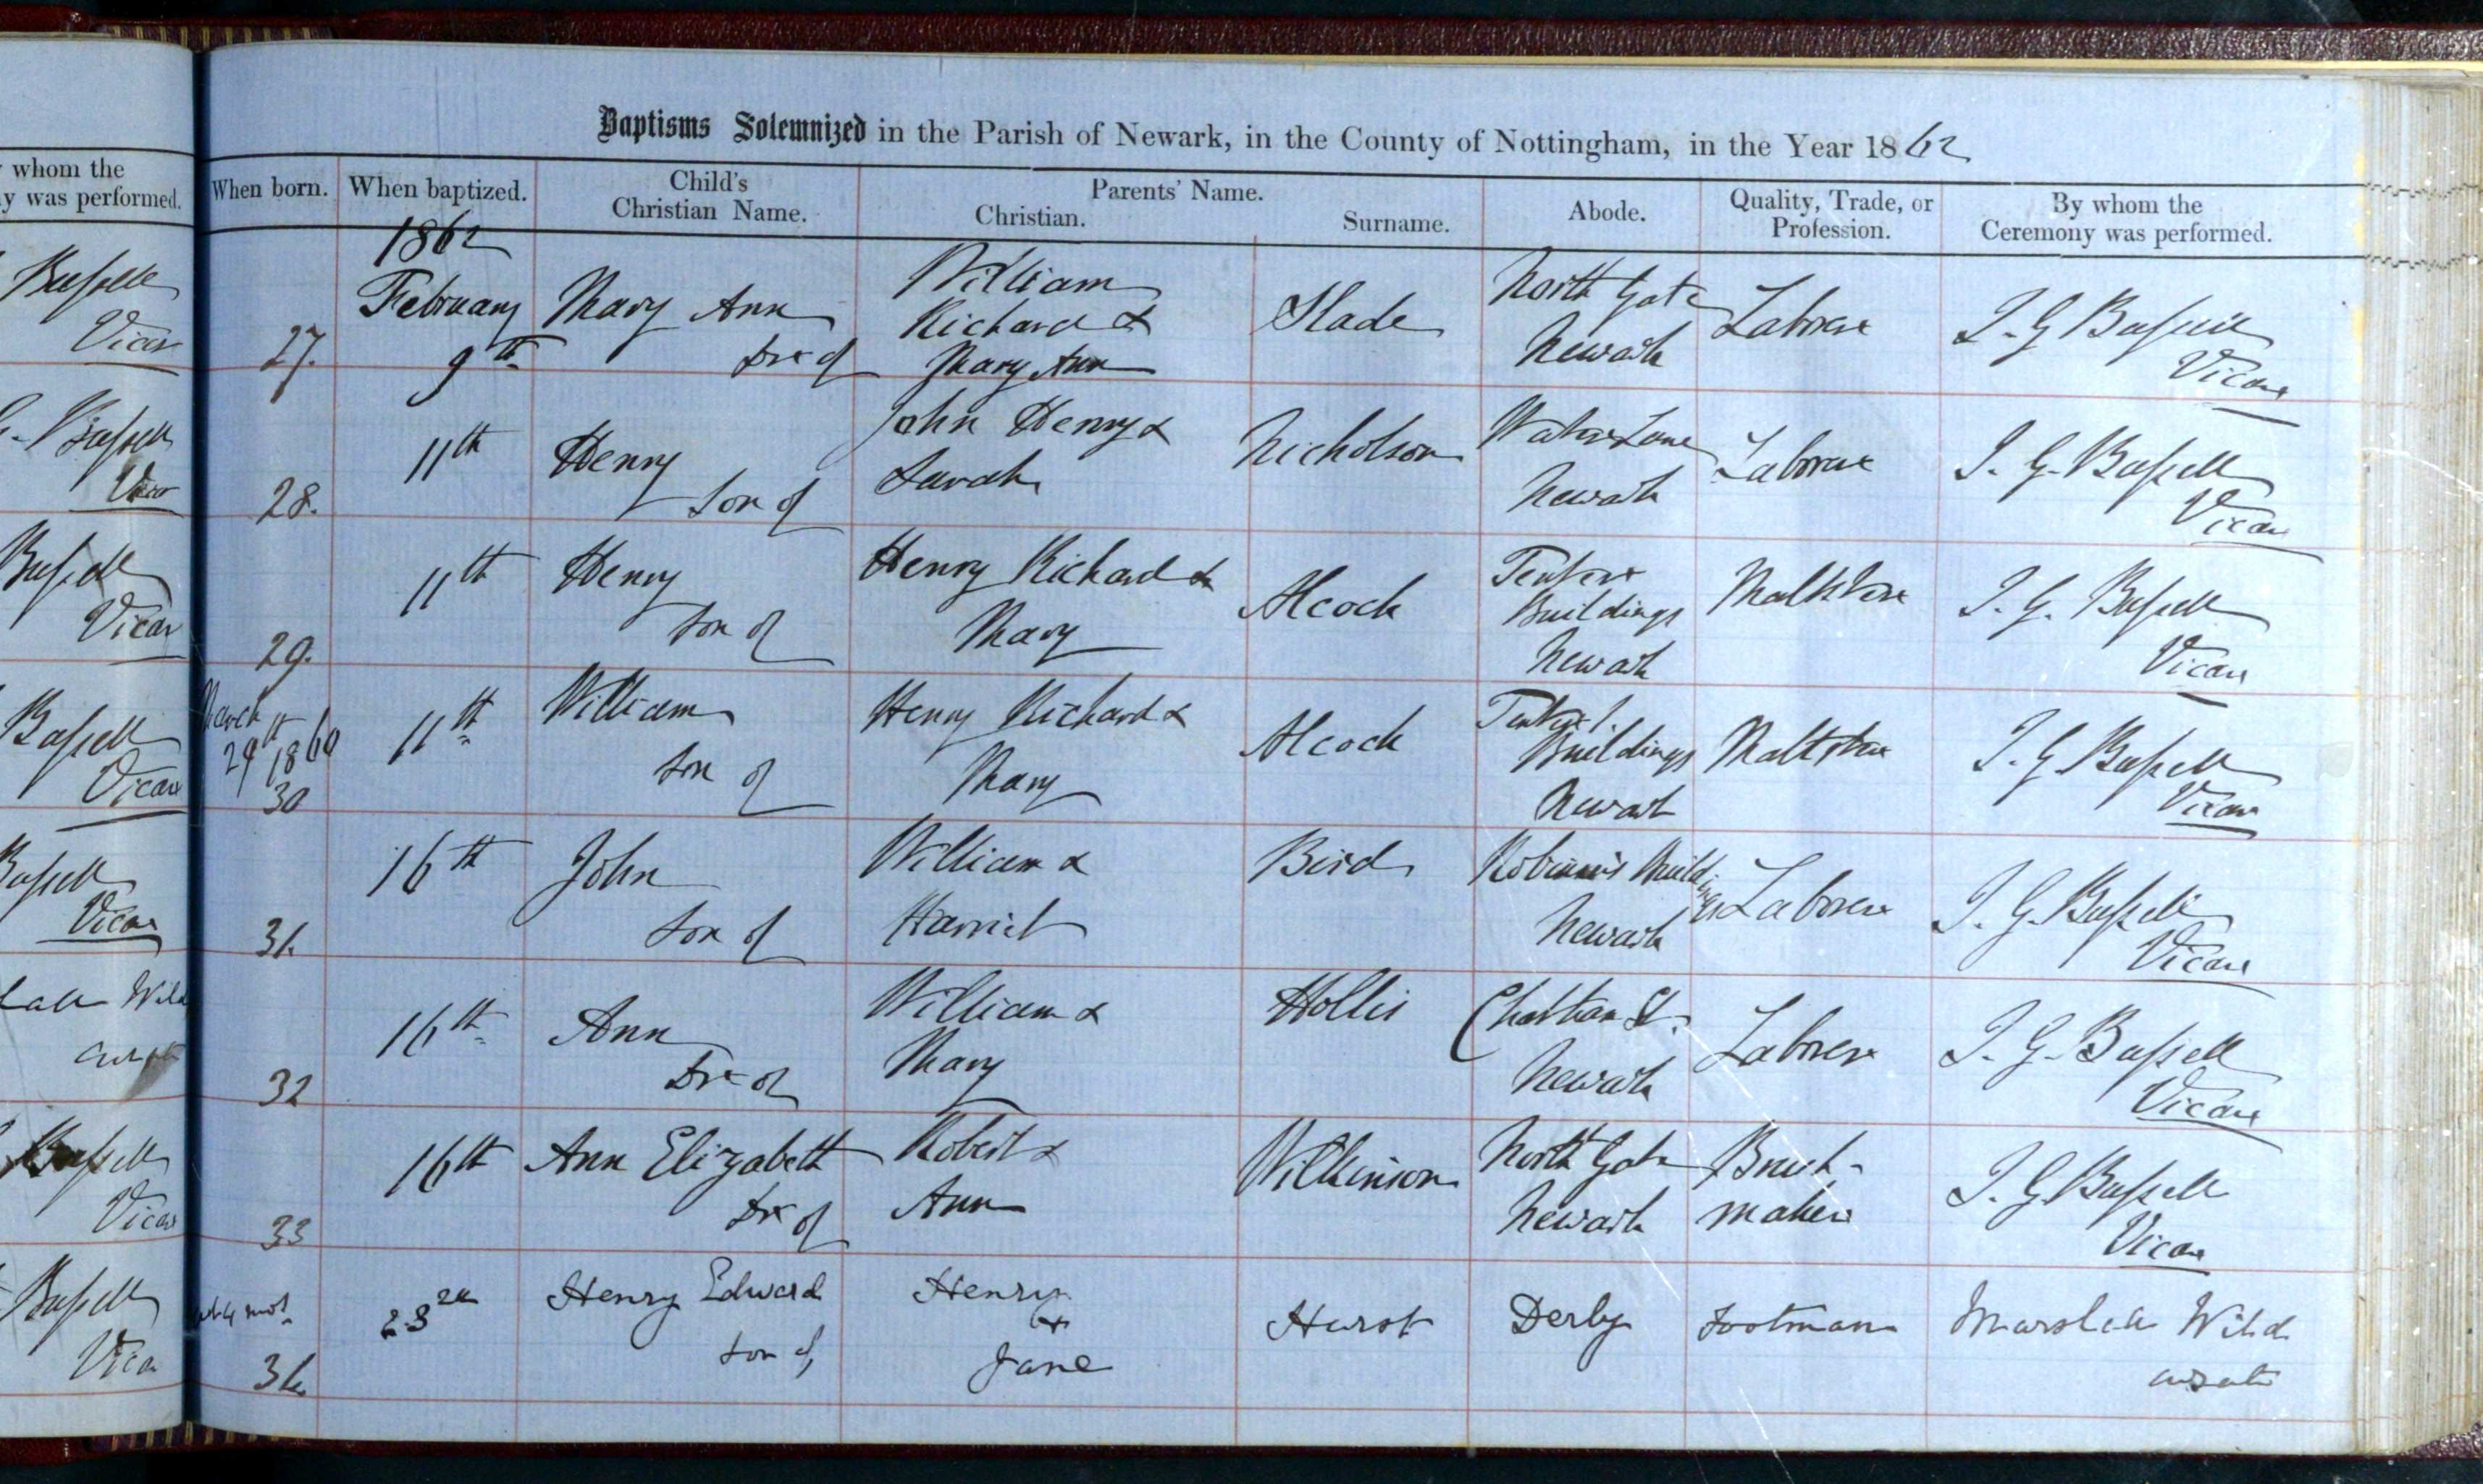 whom the
y was performed.
Bussell
Vicar
G. Bussell
Vicar
Bussell
Vicar
Bussell
Vicar
Bussell
Vicar
Wild
curate
Bussell
Vicar
Bussell
Vicar
Baptisms Solemnized in the Parish of Newark, in the County of Nottingham, in the Year 1862
When born. When baptized. Child's Christian Name. Parents' Name. Christian. Surname. Abode. Quality, Trade, or Profession. By whom the Ceremony was performed.
1862
27. February 9th Mary Ann Dr of William Richard & Mary Ann Slade North Gate Newark Laborer J. G Bussell Vicar
28. 11th Henry Son of John Henry & Sarah Nicholson Water Lane Newark Laborer J. G. Bussell Vicar
29. 11th Henry Son of Henry Richard & Mary Alcock Tenters Buildings Newark Maltster J. G. Bussell Vicar
March 29th 1860 30 11th William Son of Henry Richard & Mary Alcock Buildings Newark Maltster J. G Bussell Vicar
31. 16th John Son of William & Harriet Bird Buildings Newark Laborer J. G. Bussell Vicar
32 16th Ann Dr of William & Mary Hollis Chatham St. Newark Laborer J. G. Bussell Vicar
33 16th Ann Elizabeth Dr of Robert & Ann Wilkinson North Gate Newark maker J. G Bussell Vicar
34 23rd Henry Edward Son of Henry & Jane Hurst Derby Footman Marshall Wild curate